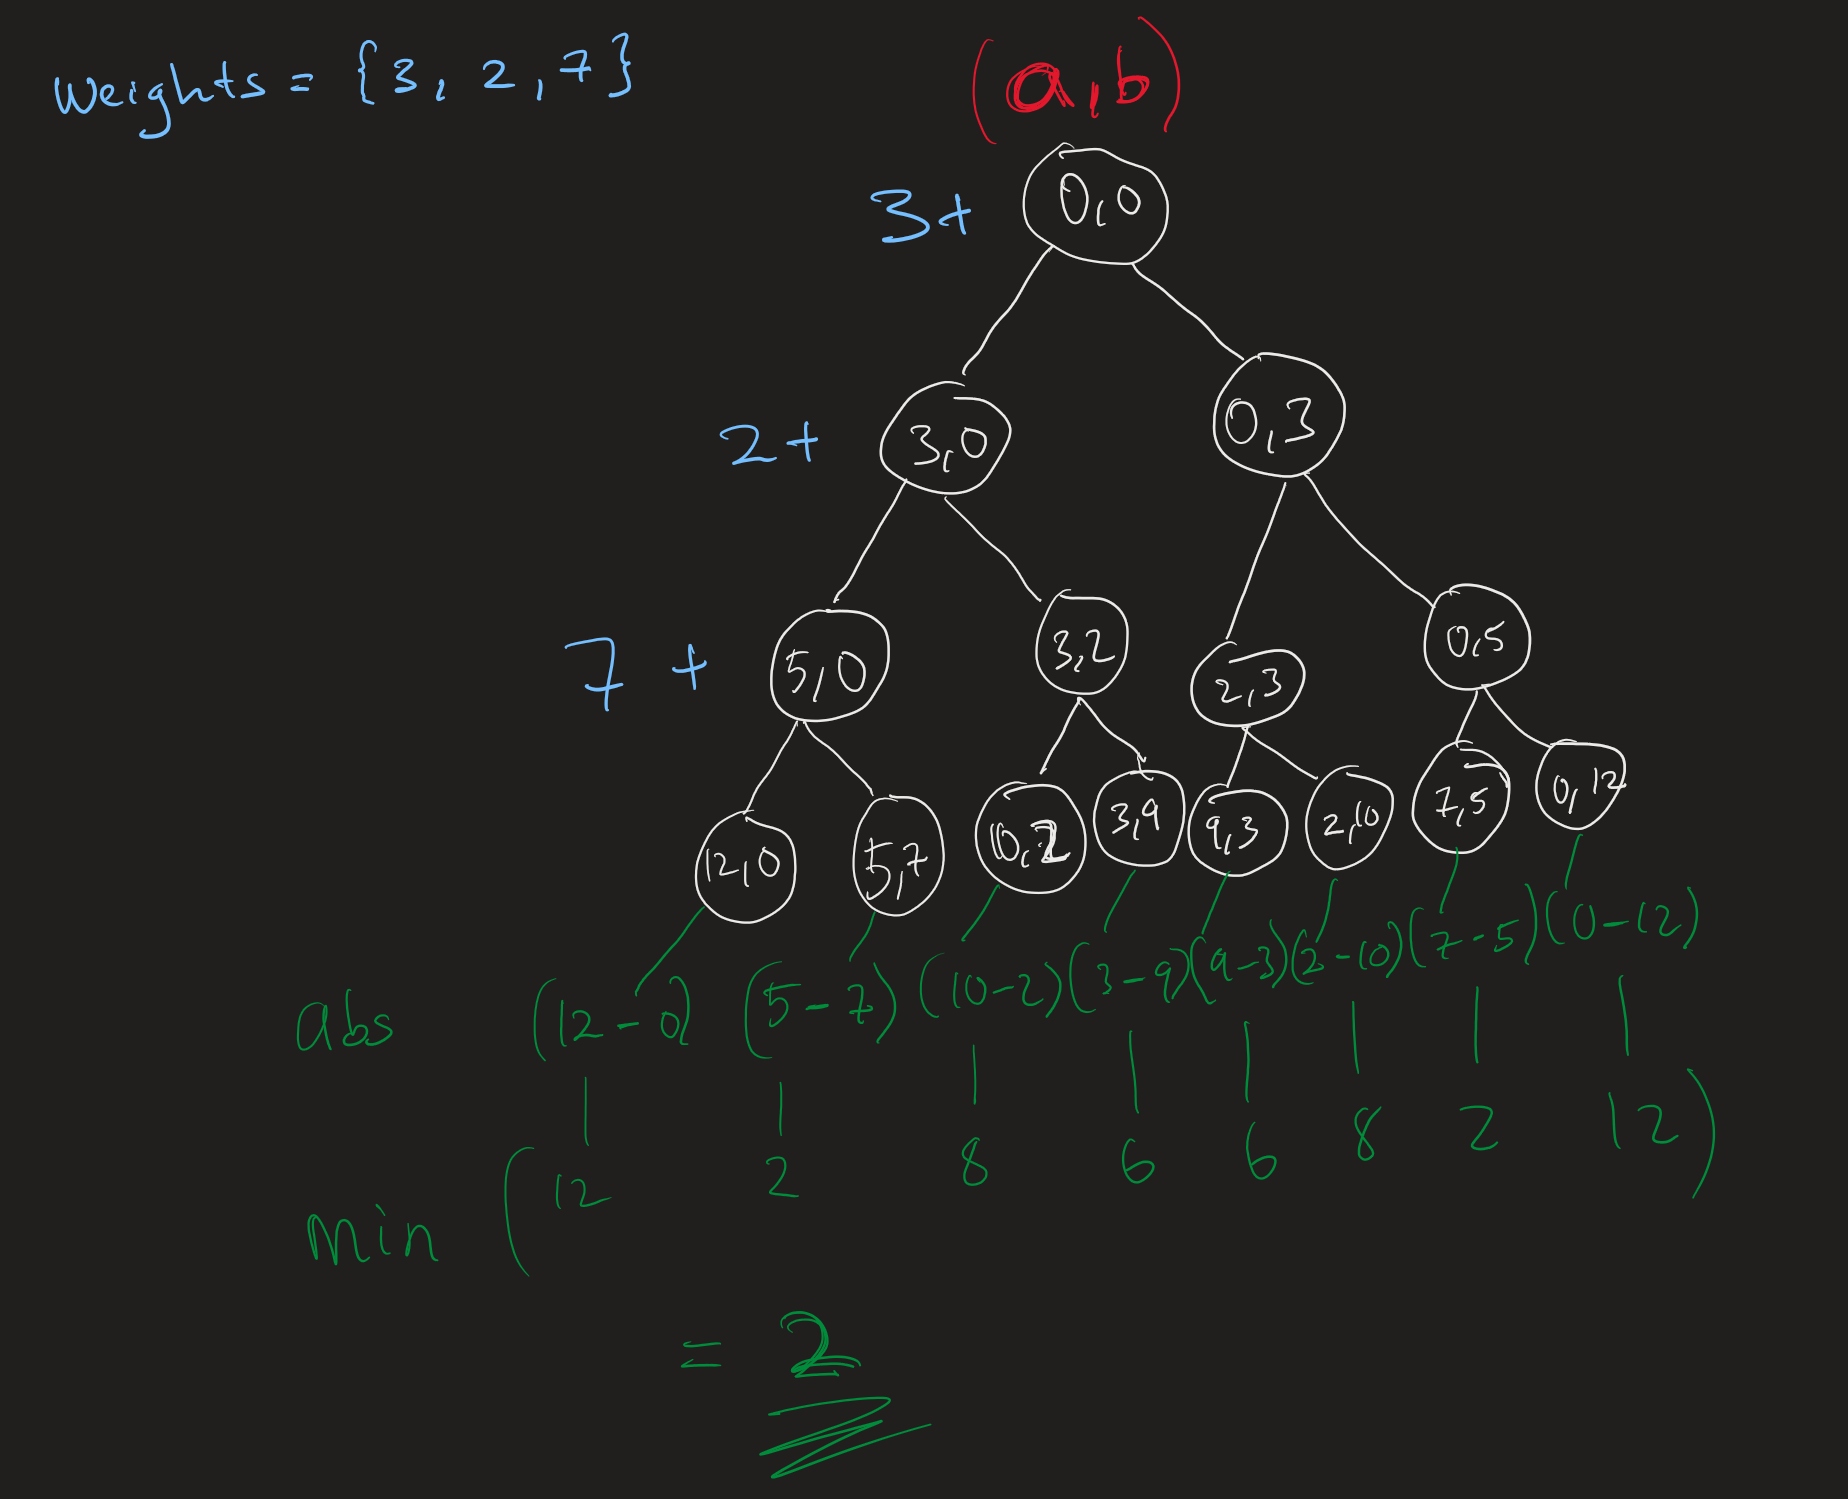 weights = {3, 2, 7}
(a,b)
3+
0,0
2+
3,0
0,3
7 +
5,0
3,2
2,3
0,5
12,0
5,7
10,2
3,9
9,3
2,10
7,5
0,12
abs (12-0) (5-7) (10-2) (3-9) (9-3) (2-10) (7-5) (0-12)
min (12 2 8 6 6 8 2 12)
= 2